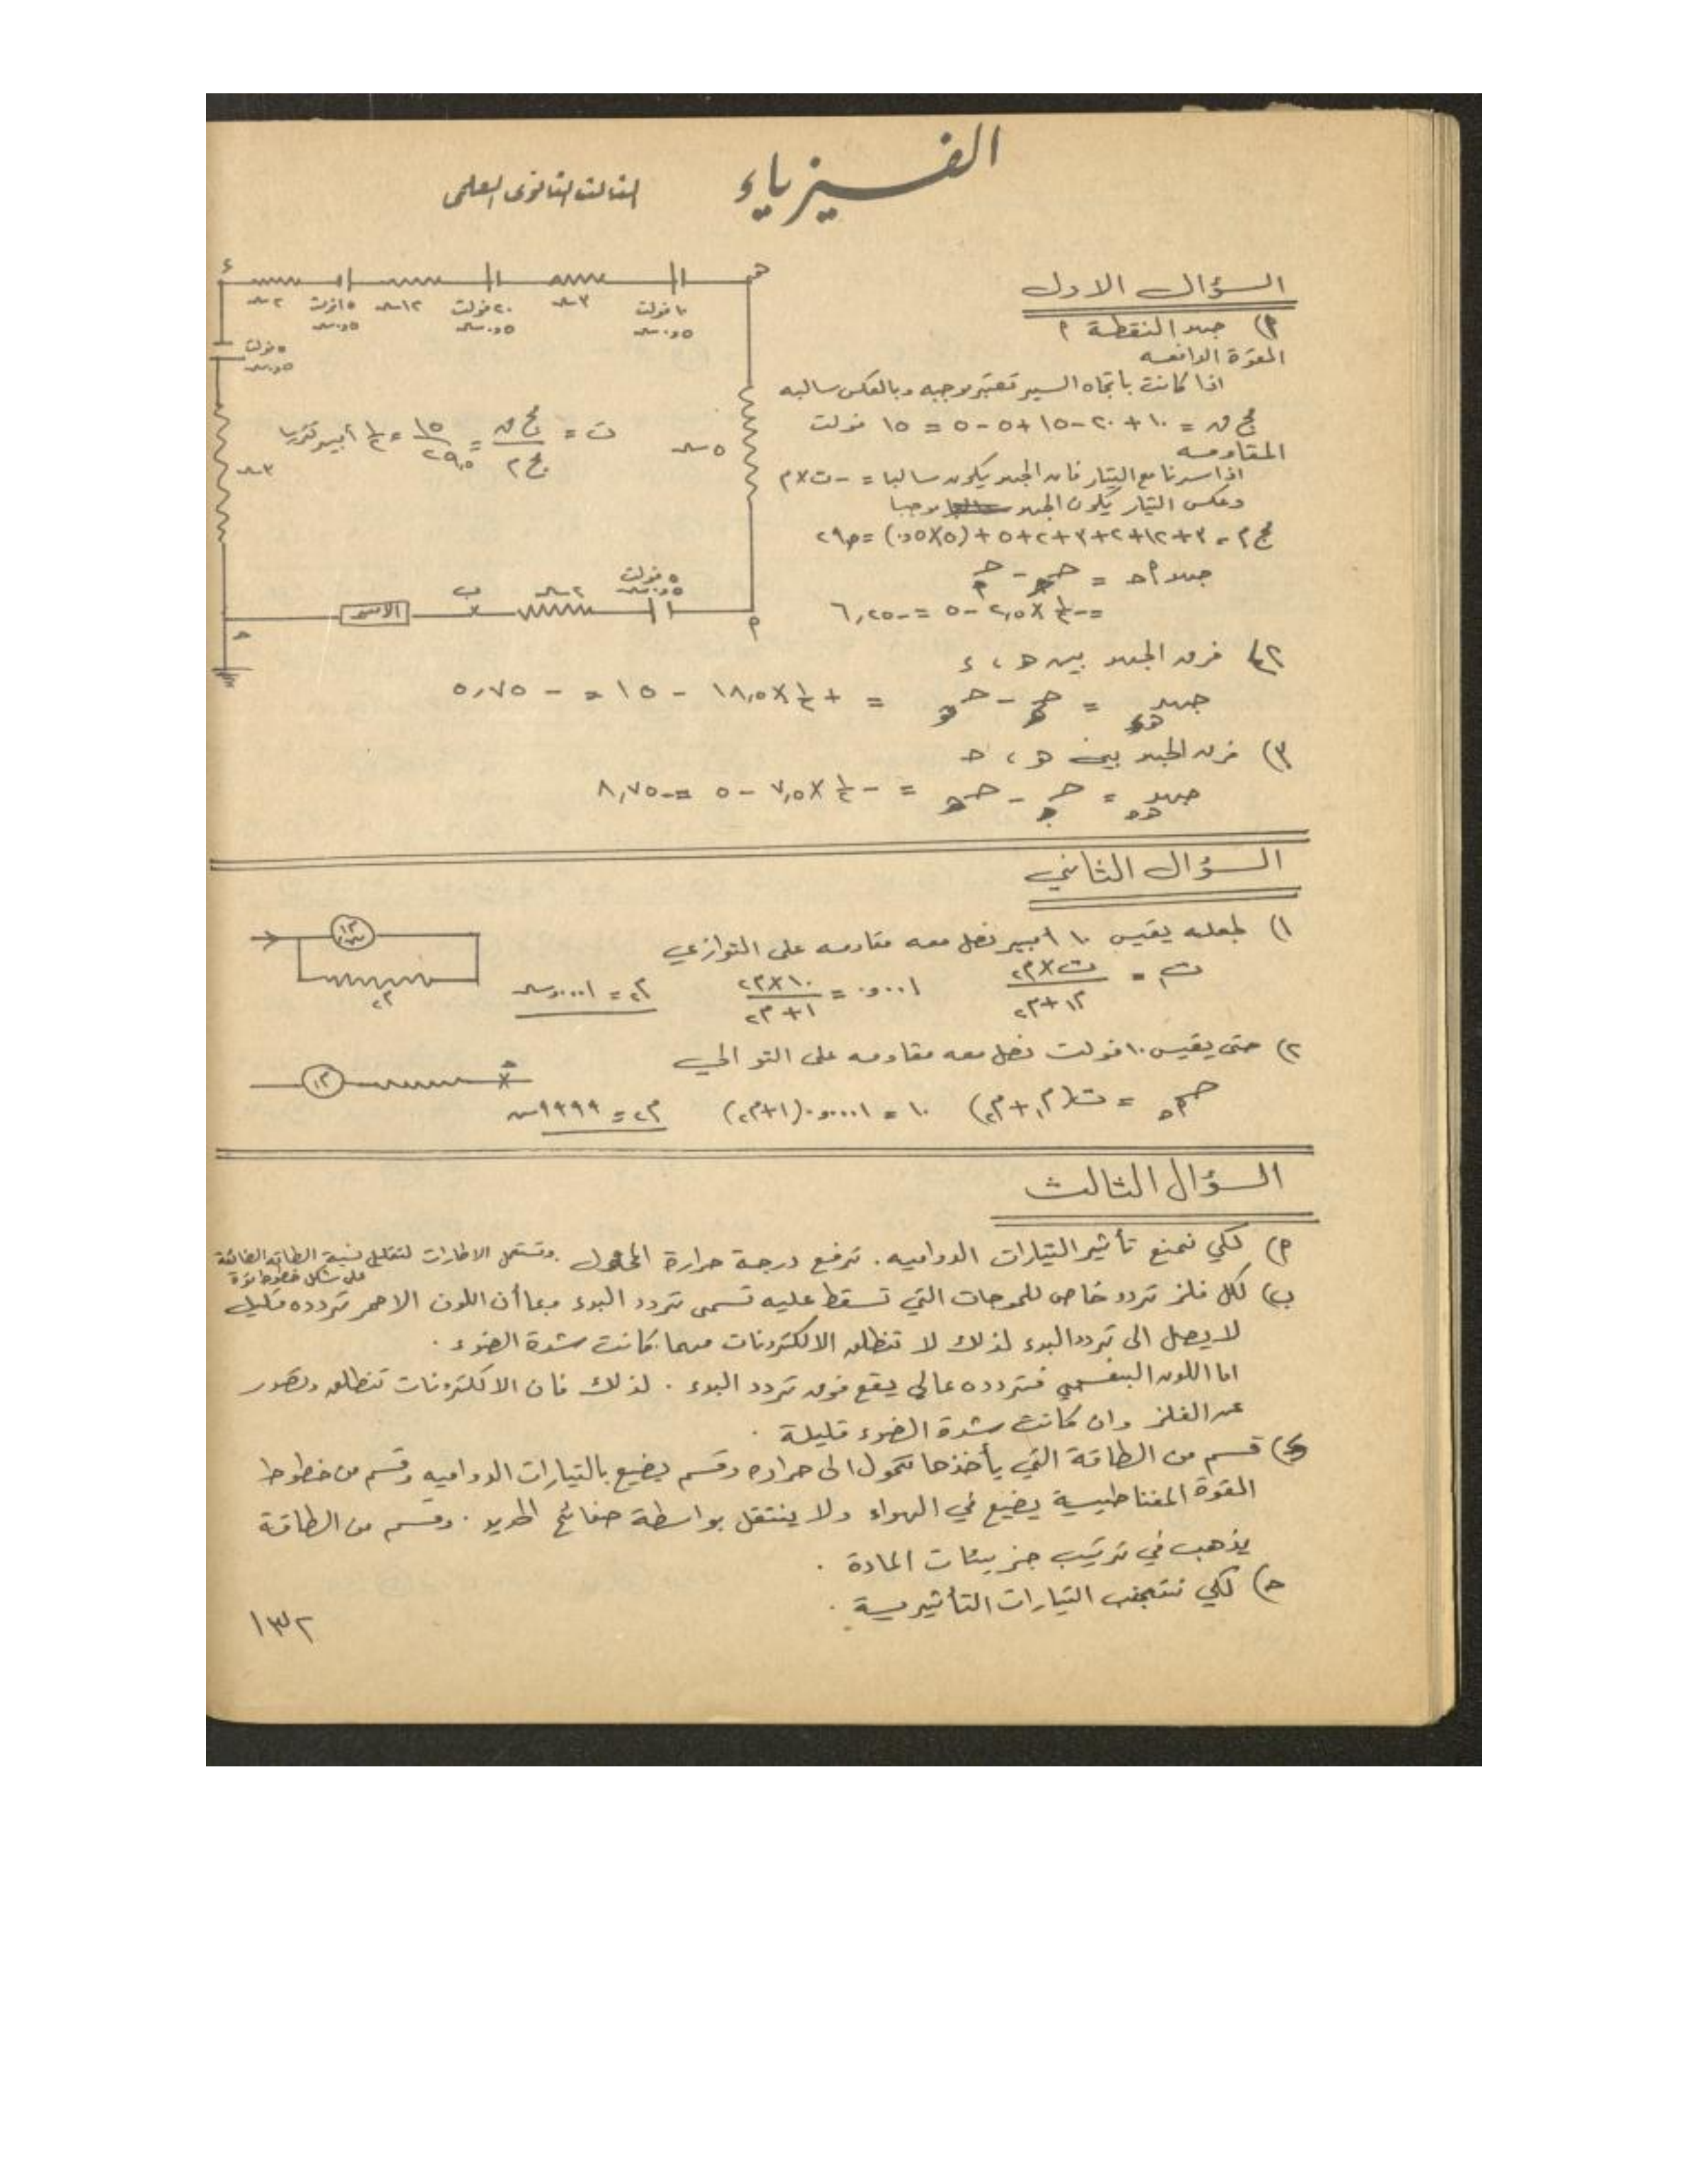 الفيزياء
الثالث الثانوي العلمي
السؤال الاول
٢) جهد النقطة ٢
القوة الدافعه
اذا كانت باتجاه السير تعتبر موجبه وبالعكس سالبه
مج ق = ١٠ + ٢٠ - ١٥ + ٥ - ٥ = ١٥ فولت
المقاومه
اذا سرنا مع التيار فان الجهد يكون سالبا = - ت × م
وعكس التيار يكون الجهد موجبا
مج م = ٣ + ١٢ + ٢ + ٣ + ٢ + ٥ + (٥ × ٠,٥) = ٢٩,٥
= - ١/٢ × ٢,٥ - ٥ = - ٦,٢٥
ء
٢ س ١٥ فولت ١٢ س ٢٠ فولت ٣ س ١٠ فولت
٠,٥ س ٠,٥ س ٠,٥ س
هـ
٥ فولت
٠,٥ س
ت = مج ق / مج م = ١٥ / ٢٩,٥ = ١/٢ أمبير تقريبا
٥ س
٣ س
٥ فولت
٠,٥ س
٢ س
ب
٢) فرق الجهد بين هـ ، ء
= + ١/٢ × ١٨,٥ - ١٥ = - ٥,٧٥
٣) فرق الجهد بين هـ ، حـ
= - ١/٢ × ٧,٥ - ٥ = - ٨,٧٥
السؤال الثاني
١) لجعله يقيس ١٠ أمبير نصل معه مقاومه على التوازي
ت١ = ت × م٢ / م١ + م٢ ٠,٠٠١ = ١٠ × م٢ / ١ + م٢ م٢ = ٠,٠٠٠١ س
٢) حتى يقيس ١٠ فولت نصل معه مقاومه على التوالي
= ت (م١ + م٢) ١٠ = ٠,٠٠٠١ (١ + م٢) م٢ = ٩٩٩٩ س
السؤال الثالث
٢) لكي نمنع تأثير التيارات الدواميه . ترفع درجة حرارة المحول . وتستعمل الاطارات لتقليل نسبة الطاقه الضائعة
على شكل خطوط
ب) لكل فلز تردد خاص للموجات التي تسقط عليه تسمى تردد البدء وبما أن اللون الاحمر تردده قليل
لا يصل الى تردد البدء لذلك لا تنطلق الالكترونات مهما كانت شدة الضوء .
اما اللون البنفسجي فتردده عالي يقع فوق تردد البدء . لذلك فان الالكترونات تنطلق
عن الفلز وان كانت شدة الضوء قليلة .
ء) قسم من الطاقة التي يأخذها تتحول الى حراره وقسم يضيع بالتيارات الدواميه وقسم من خطوط
القوة المغناطيسية يضيع في الهواء ولا ينتقل بواسطة صفائح الحديد . وقسم من الطاقة
يذهب في ترتيب جزيئات المادة .
حـ) لكي نتجنب التيارات التأثيرية .
١٣٢